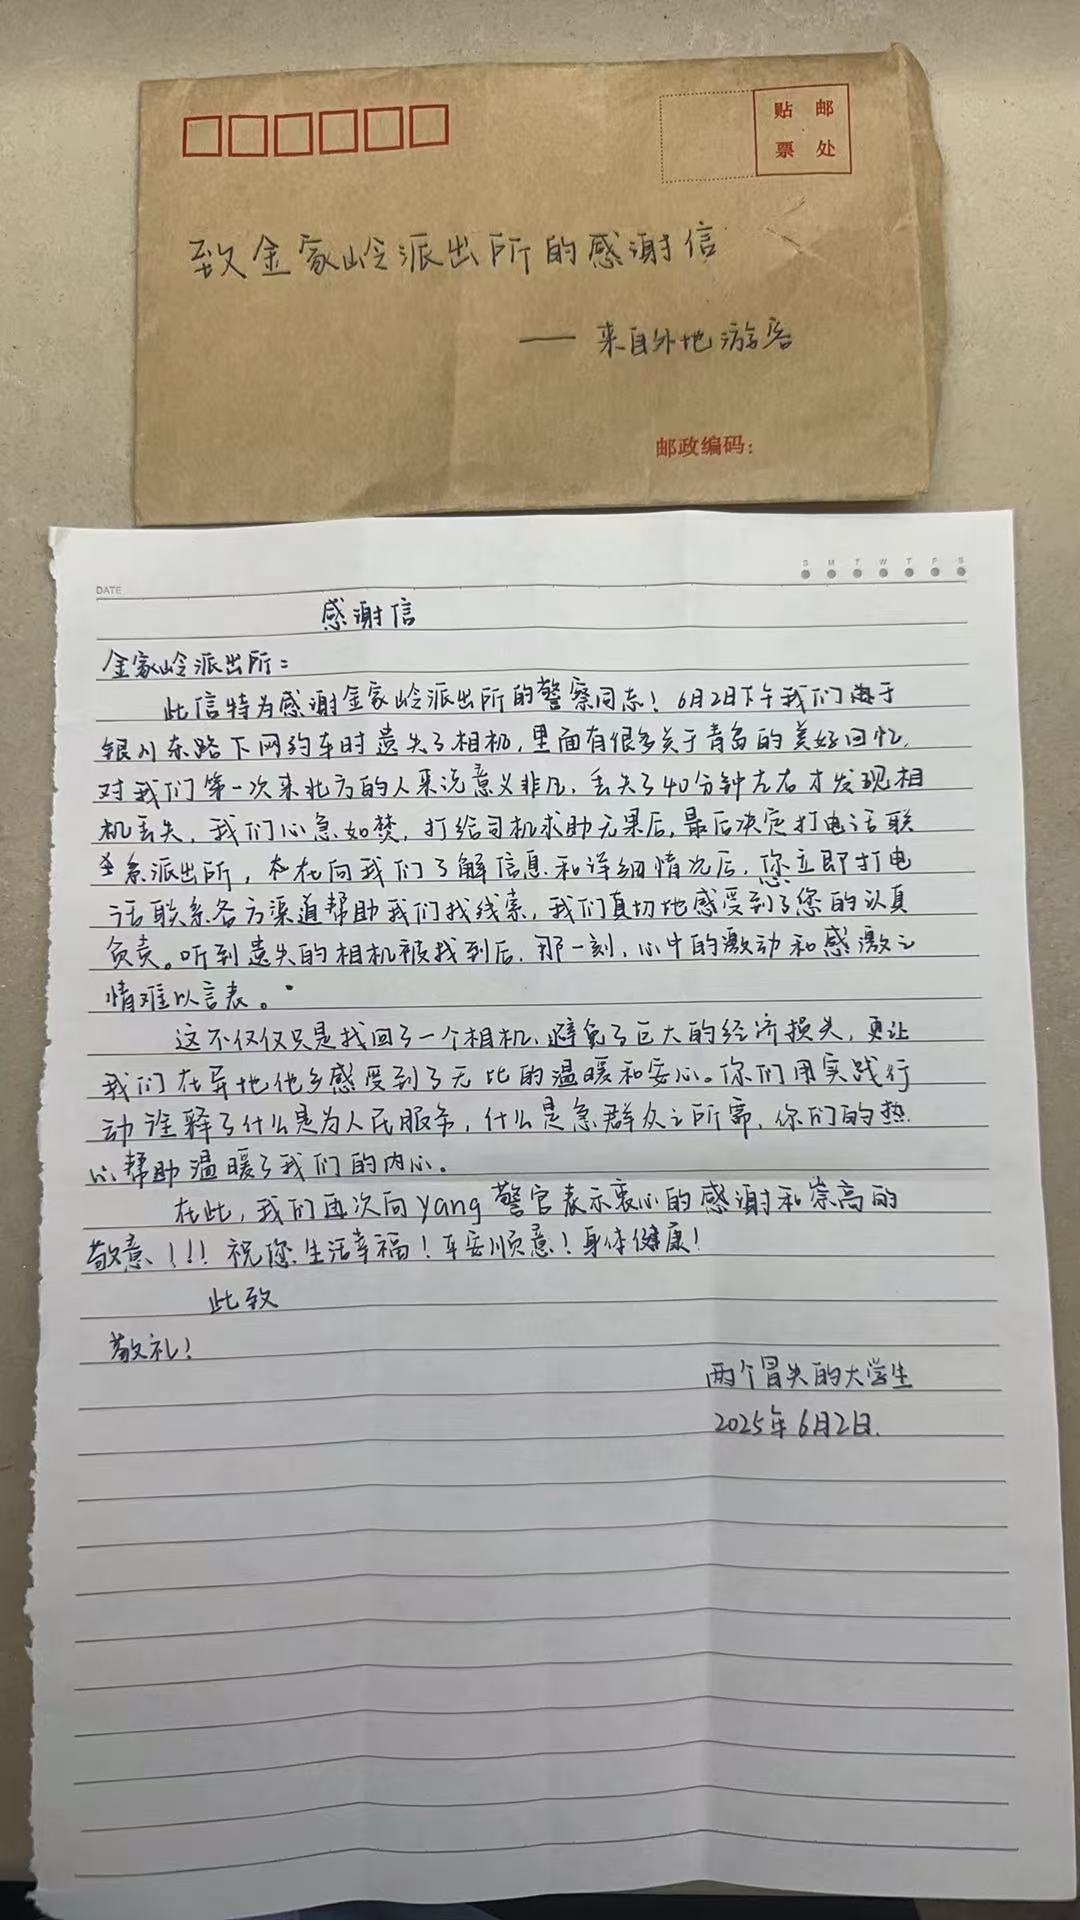 贴 邮
票 处
致金家岭派出所的感谢信
—— 来自外地游客
邮政编码:
S M T W T F S
DATE
感谢信
金家岭派出所:
此信特为感谢金家岭派出所的警察同志！6月2日下午我们
银川东路下网约车时遗失了相机，里面有很多关于青岛的美好回忆，
对我们第一次来北方的人来说意义非凡，丢失了40分钟左右才发现相
机丢失，我们心急如焚，打给司机求助无果后，最后决定打电话联
系派出所，在向我们了解信息和详细情况后，您立即打电
话联系各方渠道帮助我们找线索，我们真切地感受到了您的认真
负责。听到遗失的相机被找到后，那一刻，心中的激动和感激之
情难以言表。
这不仅仅只是找回了一个相机、避免了巨大的经济损失，更让
我们在异地他乡感受到了无比的温暖和安心。你们用实践行
动诠释了什么是为人民服务，什么是急群众之所需，你们的热
心帮助温暖了我们的内心。
在此，我们再次向yang警官表示衷心的感谢和崇高的
敬意！！！祝您生活幸福！平安顺意！身体健康！
此致
敬礼！
两个冒失的大学生
2025年6月2日.